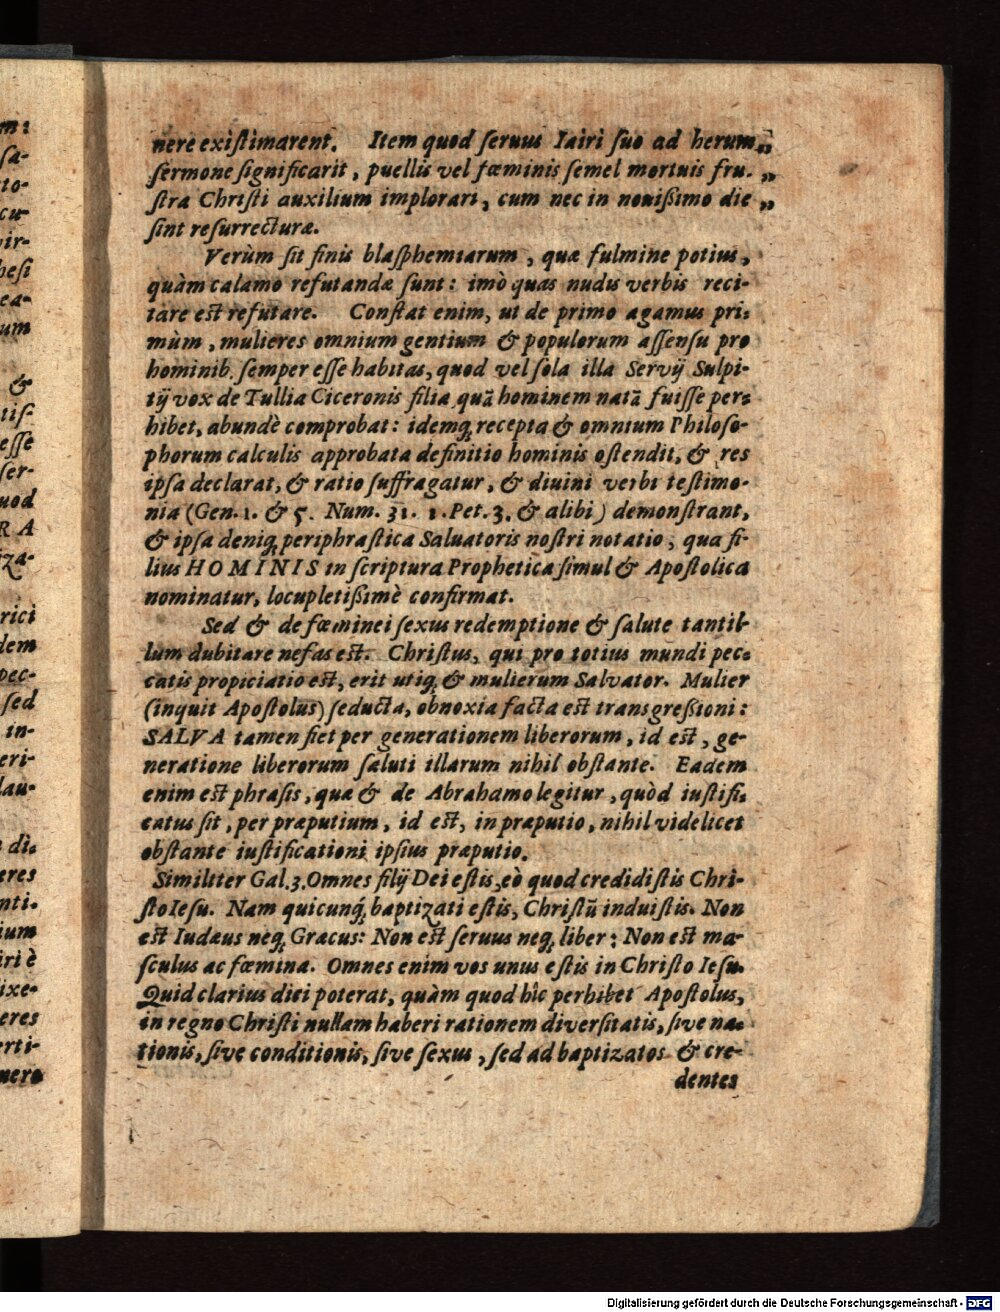 m:
sa-
to-
cu-
vir-
hesi
ea-
um
&
tis-
esse
ser-
uod
R A
iza-
rici
dem
pec-
sed
in-
eri-
lau-
di.
eres
nti.
ium
iri è
ixe-
eres
erti-
nere
nere existimarent. Item quod seruus Iairi suo ad herum „
sermone significarit, puellis vel fœminis semel mortuis fru. „
stra Christi auxilium implorari, cum nec in nouißimo die „
sint resurrecturæ.
Verùm sit finis blasphemiarum, quæ fulmine potius,
quàm calamo refutandæ sunt: imò quas nudis verbis reci-
tare est refutare. Constat enim, ut de primo agamus pri.
mùm, mulieres omnium gentium & populorum assensu pro
hominib. semper esse habitas, quod vel sola illa Servij Sulpi-
tij vox de Tullia Ciceronis filia quā hominem natā fuisse per.
hibet, abundè comprobat: idemq́; recepta & omnium Philoso-
phorum calculis approbata definitio hominis ostendit, & res
ipsa declarat, & ratio suffragatur, & diuini verbi testimo-
nia (Gen. 1. & 5. Num. 31. 1. Pet. 3. & alibi) demonstrant,
& ipsa deniq; periphrastica Saluatoris nostri notatio, qua fi-
lius HOMINIS in scriptura Prophetica simul & Apostolica
nominatur, locupletißimè confirmat.
Sed & de fœminei sexus redemptione & salute tantil-
lum dubitare nefas est. Christus, qui pro totius mundi pec.
catis propiciatio est, erit utiq; & mulierum Salvator. Mulier
(inquit Apostolus) seducta, obnoxia facta est transgreßioni:
SALVA tamen fiet per generationem liberorum, id est, ge-
neratione liberorum saluti illarum nihil obstante. Eadem
enim est phrasis, quæ & de Abrahamo legitur, quòd iustifi.
catus sit, per præputium, id est, in præputio, nihil videlicet
obstante iustificationi ipsius præputio.
Similiter Gal. 3. Omnes filij Dei estis, eò quod credidistis Chri-
sto Iesu. Nam quicunq́; baptizati estis, Christū induistis. Non
est Iudæus neq; Græcus: Non est seruus neq; liber: Non est ma-
sculus ac fœmina. Omnes enim vos unus estis in Christo Iesu.
Quid clarius dici poterat, quàm quod hîc perhibet Apostolus,
in regno Christi nullam haberi rationem diversitatis, sive na.
tionis, sive conditionis, sive sexus, sed ad baptizatos & cre-
dentes
Digitalisierung gefördert durch die Deutsche Forschungsgemeinschaft - DFG